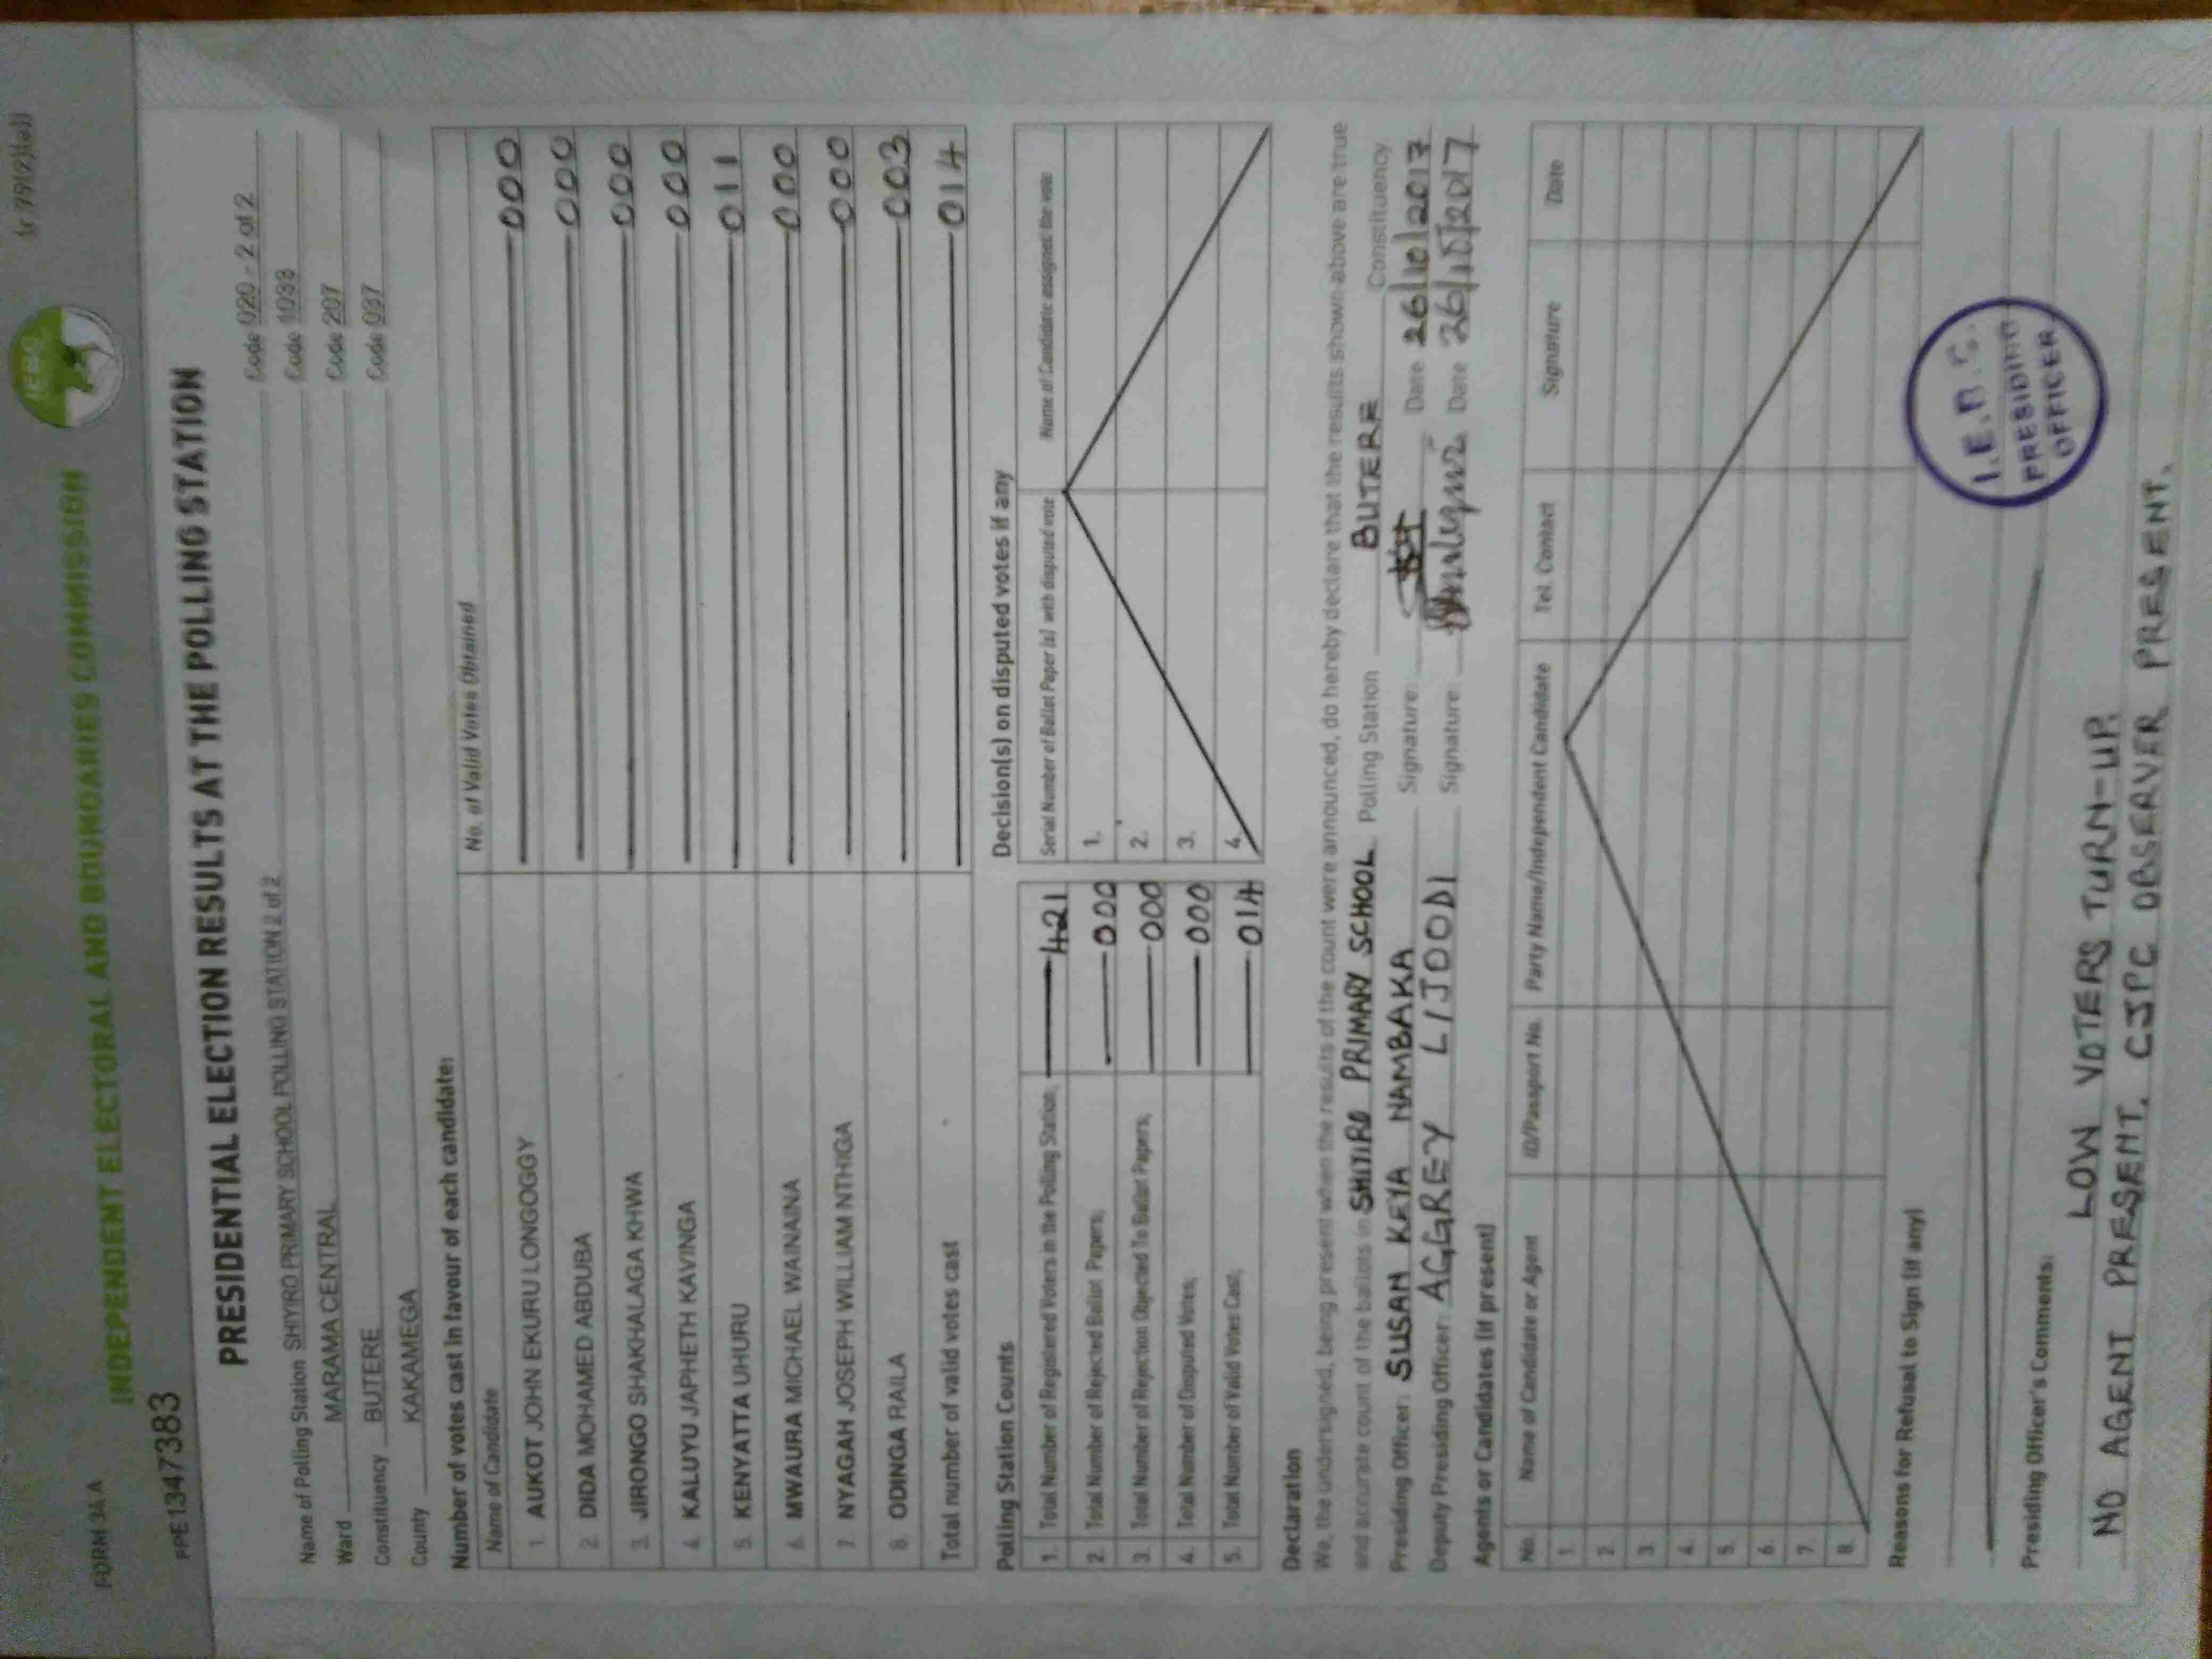 FORM 34 A
(r.79(2)(a))
IEBC
INDEPENDENT ELECTORAL AND BOUNDARIES COMMISSION
PPE1347383
PRESIDENTIAL ELECTION RESULTS AT THE POLLING STATION
Name of Polling Station SHIYIRO PRIMARY SCHOOL POLLING STATION 2 of 2 Code 020 - 2 of 2
Ward MARAMA CENTRAL Code 1033
Constituency BUTERE Code 207
County KAKAMEGA Code 037
Number of votes cast in favour of each candidate:
Name of Candidate No. of Valid Votes Obtained
1. AUKOT JOHN EKURU LONGOGGY 000
2. DIDA MOHAMED ABDUBA 000
3. JIRONGO SHAKHALAGA KHWA 000
4. KALUYU JAPHETH KAVINGA 000
5. KENYATTA UHURU 011
6. MWAURA MICHAEL WAINAINA 000
7. NYAGAH JOSEPH WILLIAM NTHIGA 000
8. ODINGA RAILA 003
Total number of valid votes cast 014
Polling Station Counts
1. Total Number of Registered Voters in the Polling Station; 421
2. Total Number of Rejected Ballot Papers; 000
3. Total Number of Rejection Objected To Ballot Papers; 000
4. Total Number of Disputed Votes; 000
5. Total Number of Valid Votes Cast; 014
Decision(s) on disputed votes if any
Serial Number of Ballot Paper (s) with disputed vote Name of Candidate assigned the vote
1.
2.
3.
4.
Declaration
We, the undersigned, being present when the results of the count were announced, do hereby declare that the results shown above are true
and accurate count of the ballots in SHITIRO PRIMARY SCHOOL Polling Station BUTERE Constituency.
Presiding Officer: SUSAN KEYA NAMBAKA Signature: Date 26/10/2017
Deputy Presiding Officer: AGGREY LIJOODI Signature: Date 26/10/2017
Agents or Candidates (if present)
No. Name of Candidate or Agent ID/Passport No. Party Name/Independent Candidate Tel. Contact Signature Date
1.
2.
3.
4.
5.
6.
7.
8.
Reasons for Refusal to Sign (if any)
I.E.B.C.
PRESIDING
OFFICER
Presiding Officer's Comments:
LOW VOTERS TURN-UP.
NO AGENT PRESENT. CJPC OBSERVER PRESENT.